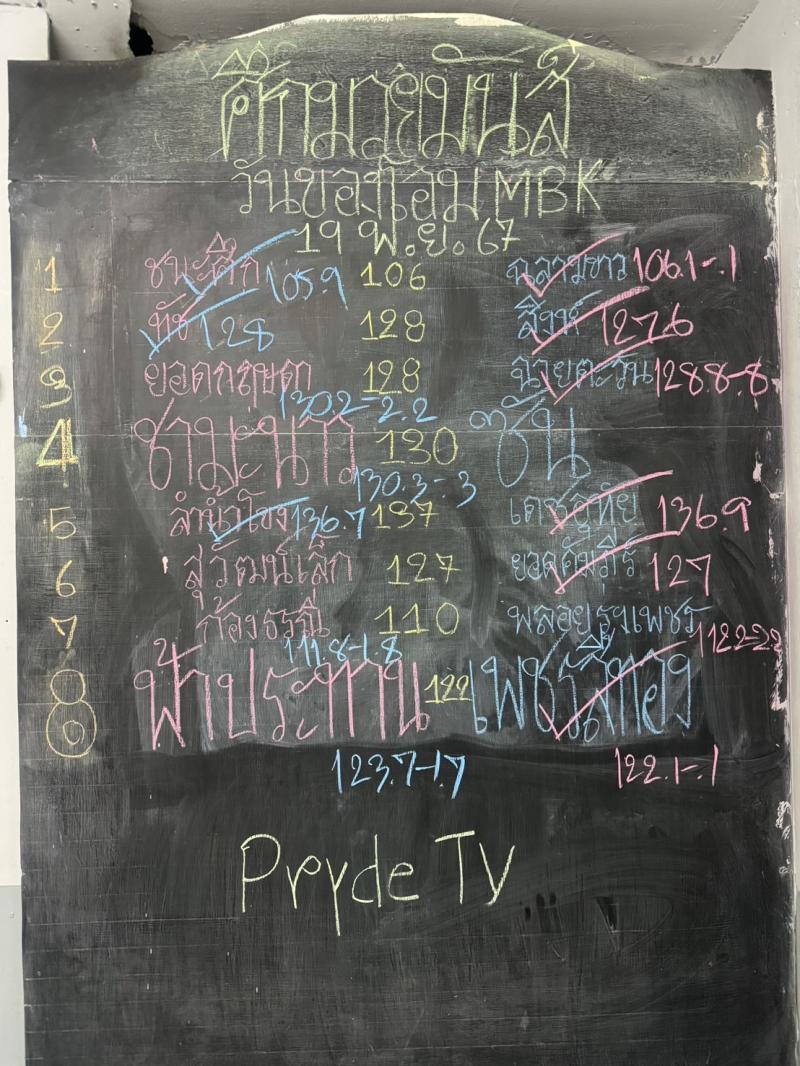 ศึกมวยมันส์
วันของโอม MBK
19 พ.ย. 67
1 ชนะศึก 105.9 106 ฉลามขาว 106.1-.1
2 ทัช 128 128 สิงห์ 127.6
3 ยอดกฤษดา 128 ฉายตะวัน 128.8-.8
130.2-2.2
4 ชามะนาว 130 ซัน
130.3-.3
5 ลำน้ำโขง 136.7 137 เดชอุทัย 136.9
6 สุวัฒน์เล็ก 127 ยอดคัมภีร์ 127
7 ก้อง 110 พลอยรุ่งเพชร
111.8-1.8 112.2-2.2
8 ฟ้าประทาน 122 เพชรสี่ทอง
123.7-1.7 122.1-.1
Pryde TV